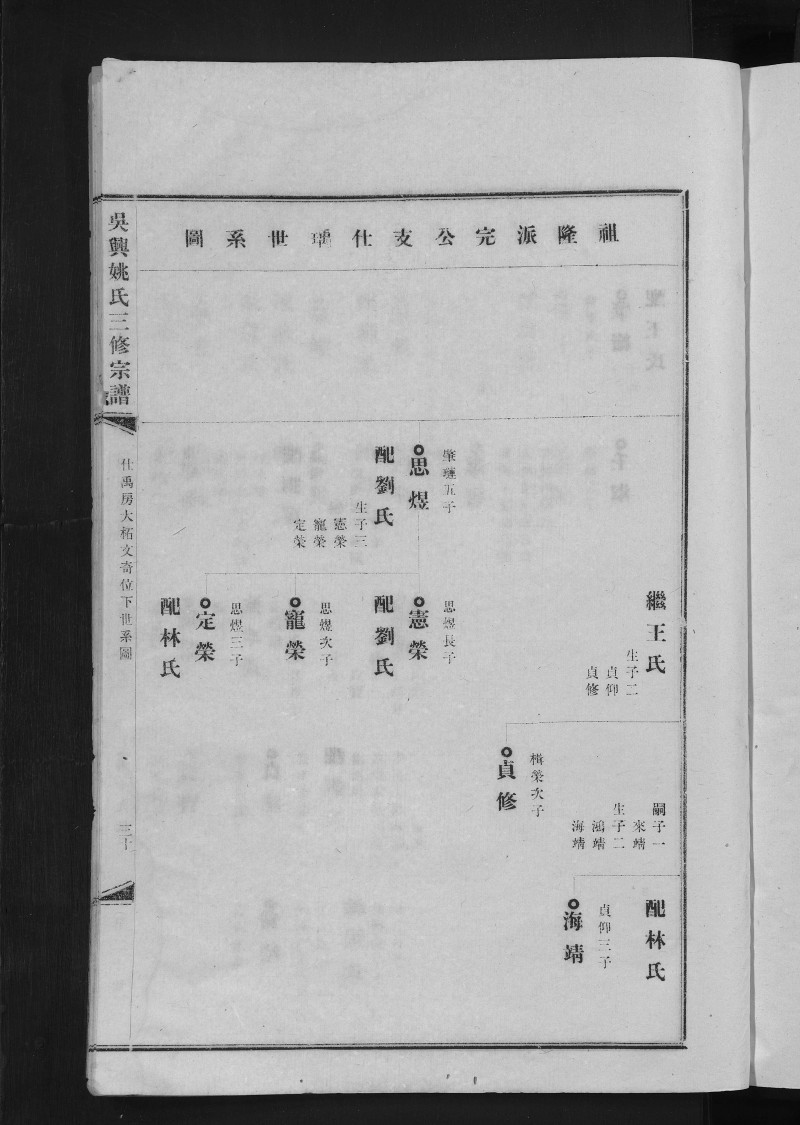 祖隆派完公支仕瑀世系圖
繼王氏
生子二
貞仰
貞修
嗣子一
來靖
生子二
鴻靖
海靖
配林氏
貞仰三子
海靖
楫榮次子
貞修
肇璉五子
思煜
配劉氏
生子三
憲榮
寵榮
定榮
思煜長子
憲榮
配劉氏
思煜次子
寵榮
思煜三子
定榮
配林氏
吳興姚氏三修宗譜
仕禹房大柘文奇位下世系圖
三十